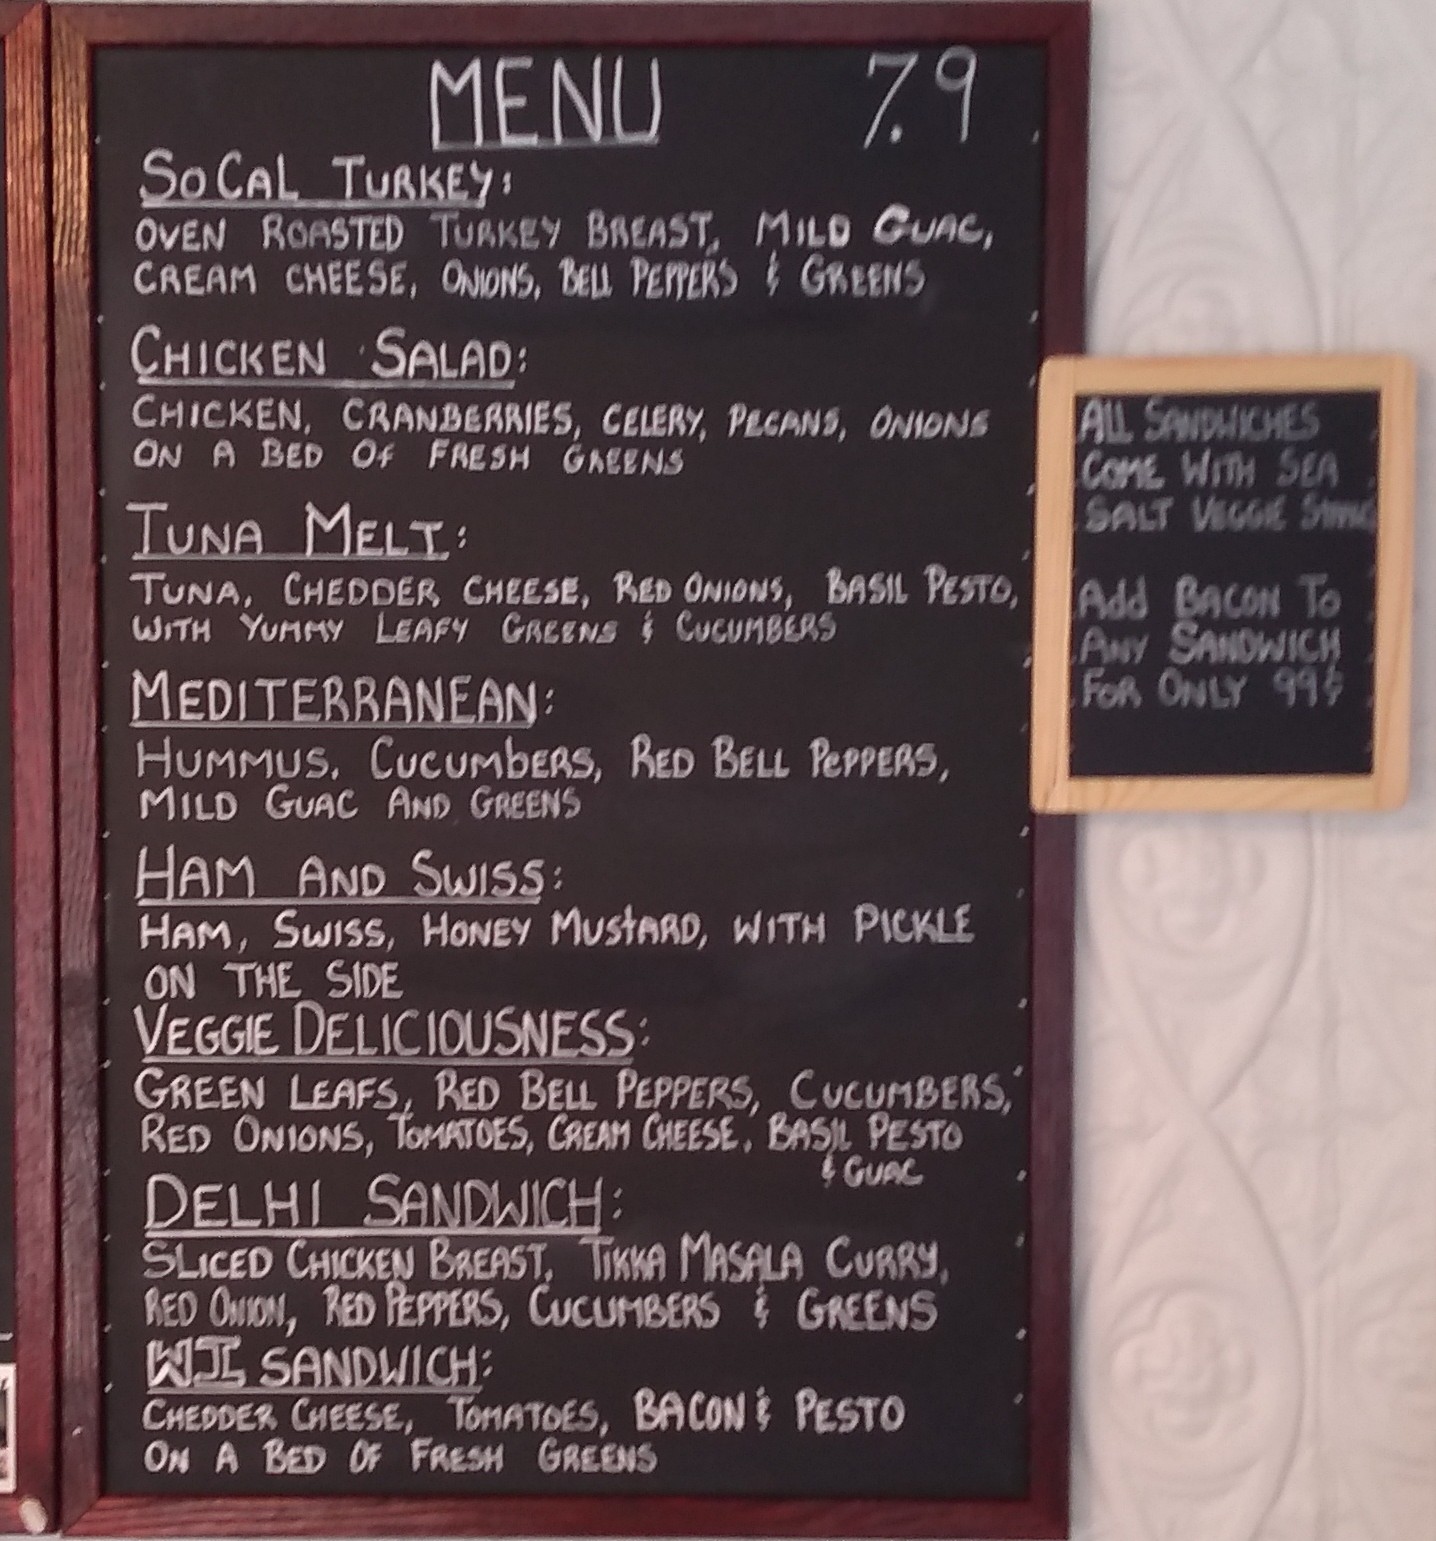 MENU 7.9
SOCAL TURKEY:
OVEN ROASTED TURKEY BREAST, MILD GUAC,
CREAM CHEESE, ONIONS, BELL PEPPERS & GREENS
CHICKEN SALAD:
CHICKEN, CRANBERRIES, CELERY, PECANS, ONIONS
ON A BED OF FRESH GREENS
TUNA MELT:
TUNA, CHEDDER CHEESE, RED ONIONS, BASIL PESTO,
WITH YUMMY LEAFY GREENS & CUCUMBERS
MEDITERRANEAN:
HUMMUS, CUCUMBERS, RED BELL PEPPERS,
MILD GUAC AND GREENS
HAM AND SWISS:
HAM, SWISS, HONEY MUSTARD, WITH PICKLE
ON THE SIDE
VEGGIE DELICIOUSNESS:
GREEN LEAFS, RED BELL PEPPERS, CUCUMBERS,
RED ONIONS, TOMATOES, CREAM CHEESE, BASIL PESTO
& GUAC
DELHI SANDWICH:
SLICED CHICKEN BREAST, TIKKA MASALA CURRY,
RED ONION, RED PEPPERS, CUCUMBERS & GREENS
WJI SANDWICH:
CHEDDER CHEESE, TOMATOES, BACON & PESTO
ON A BED OF FRESH GREENS
ALL SANDWICHES
COME WITH SEA
SALT VEGGIE
Add BACON TO
ANY SANDWICH
FOR ONLY 99¢